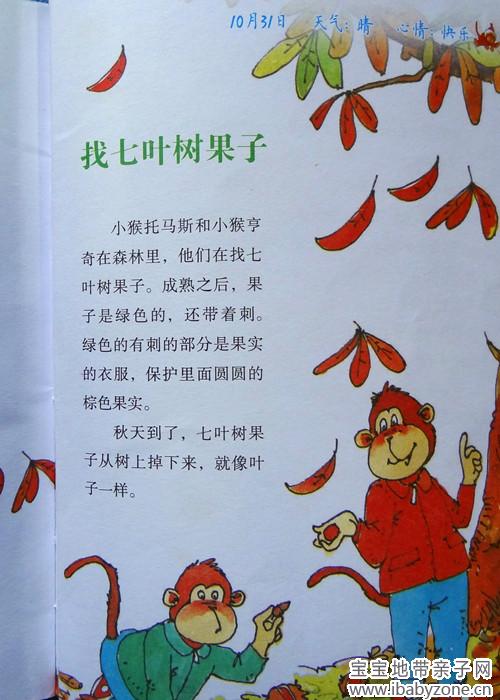 10月31日 天气:晴 心情:快乐
找七叶树果子
小猴托马斯和小猴亨
奇在森林里，他们在找七
叶树果子。成熟之后，果
子是绿色的，还带着刺。
绿色的有刺的部分是果实
的衣服，保护里面圆圆的
棕色果实。
秋天到了，七叶树果
子从树上掉下来，就像叶
子一样。
宝宝地带亲子网
www.ibabyzone.cn